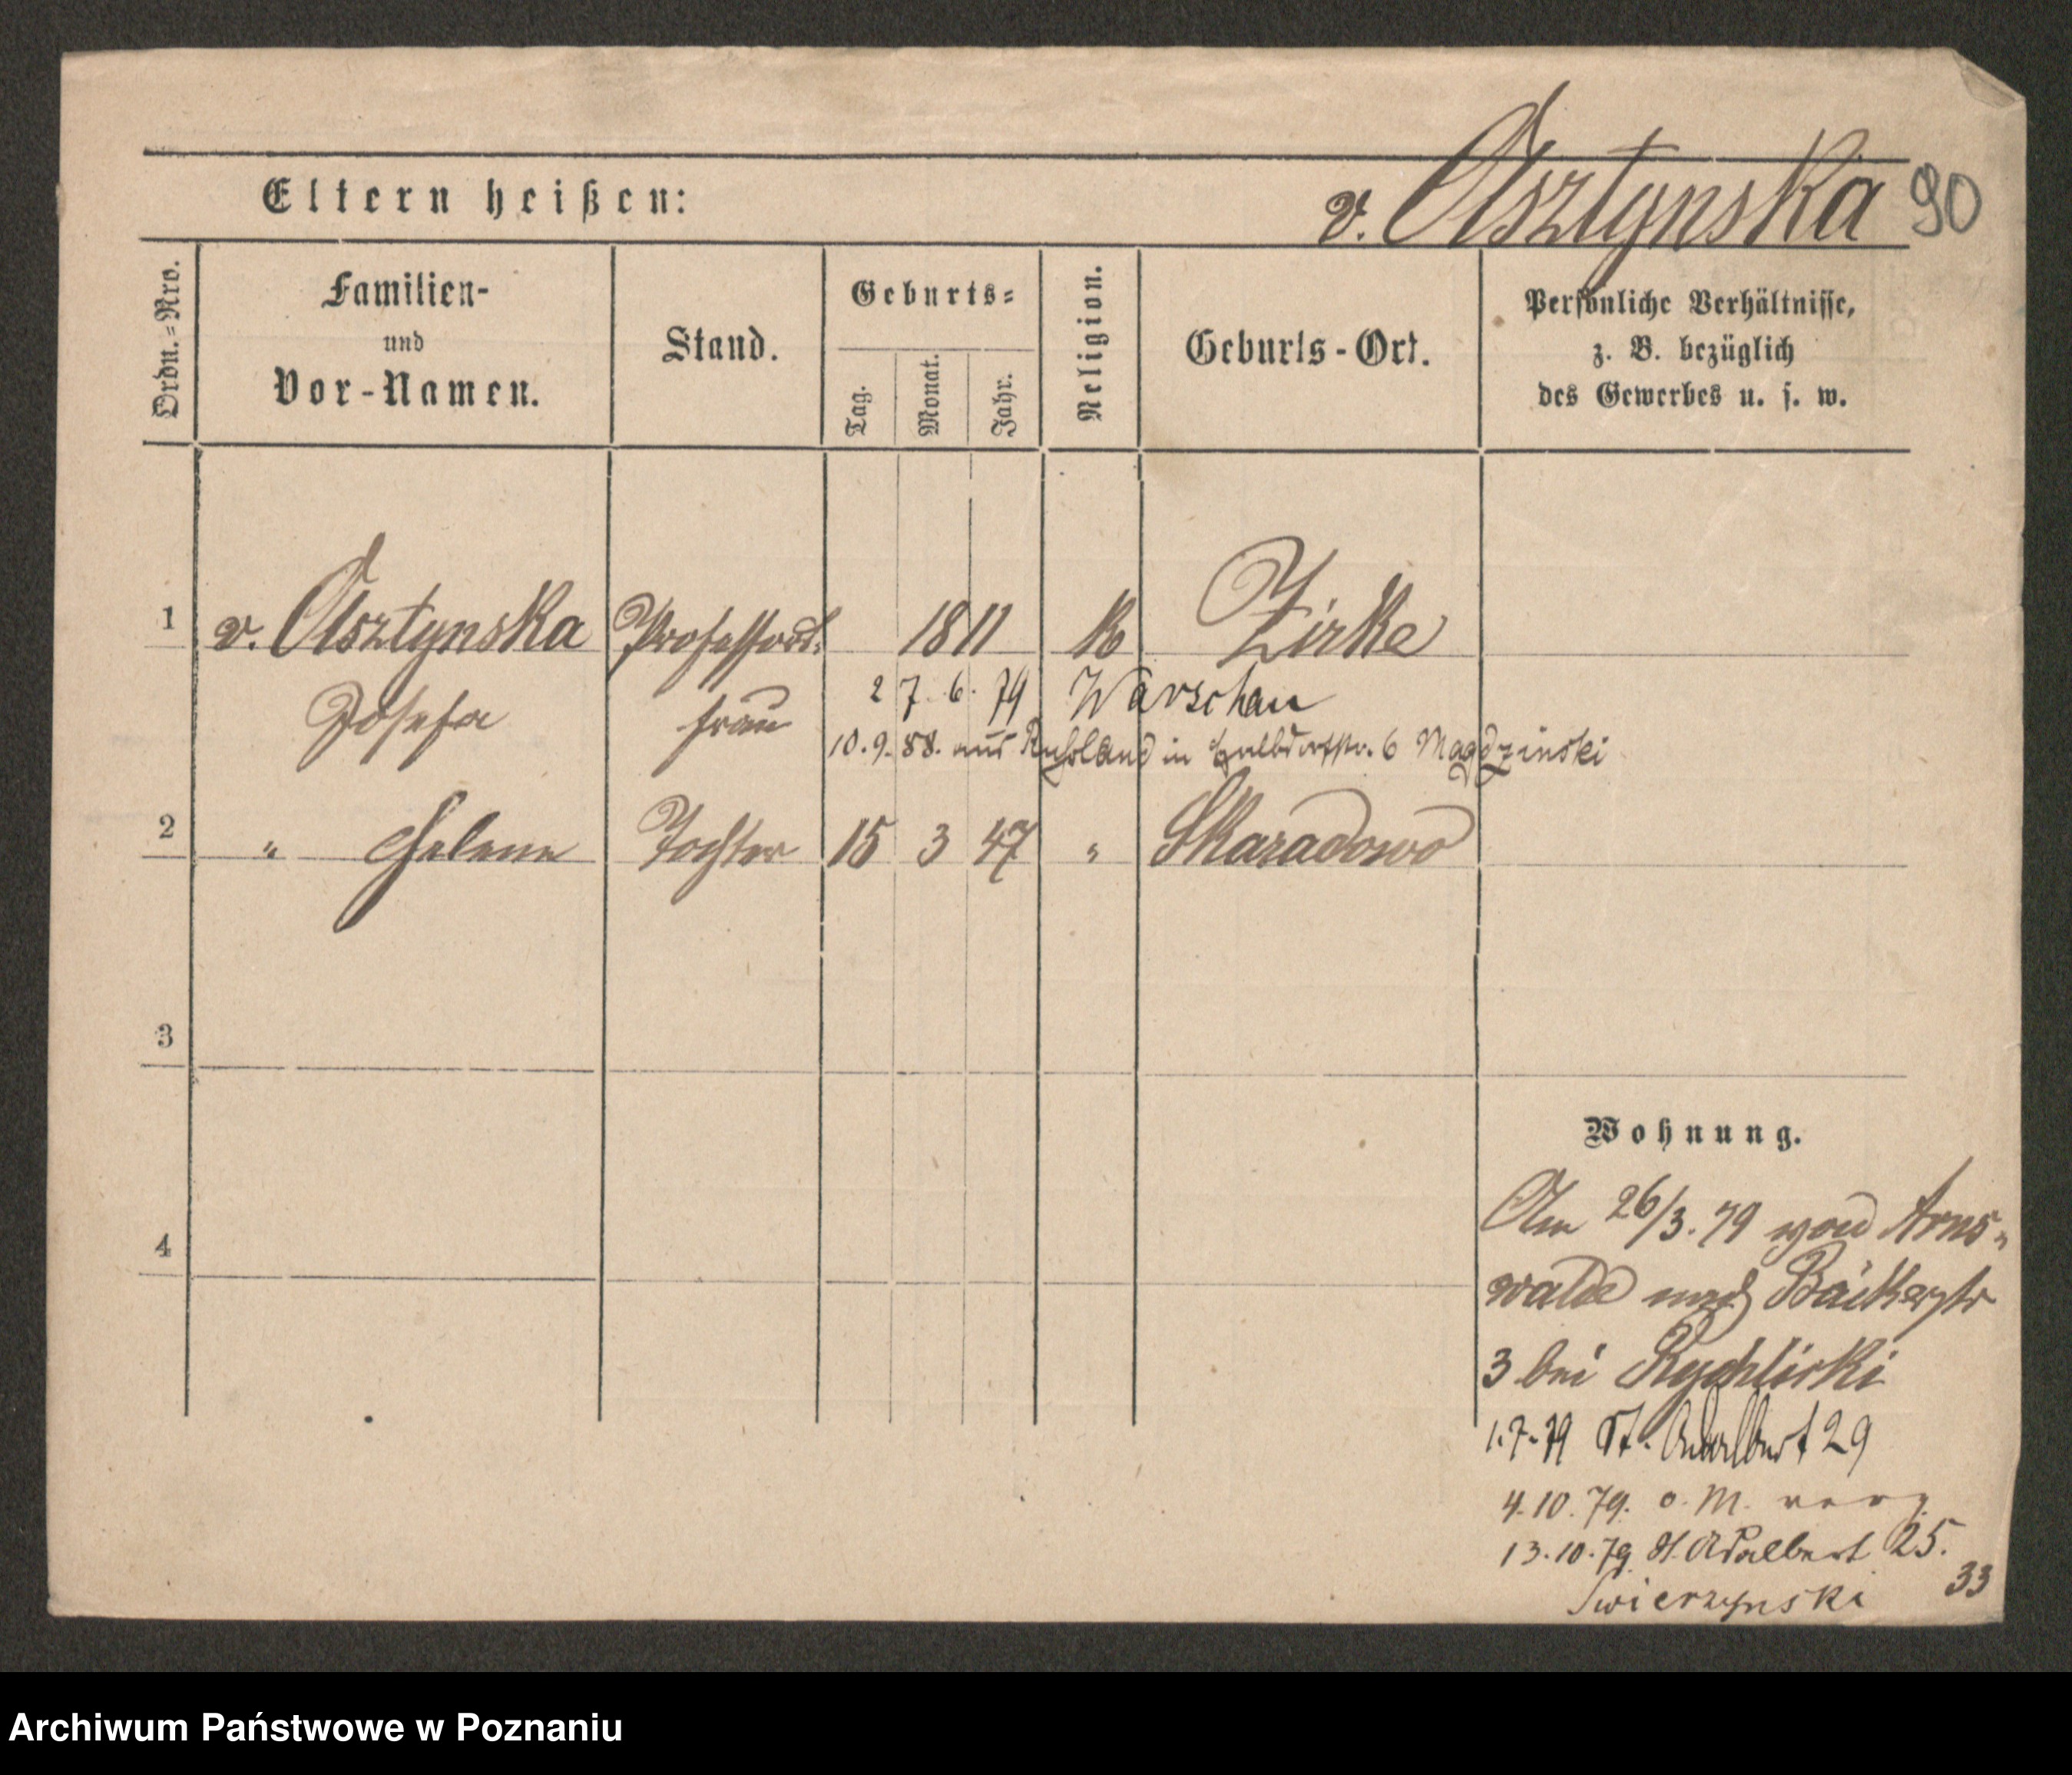 Eltern heißen: v. Olsztynska 90
Ordn.=Nro.
Familien-
und
Vor-Namen.
Stand.
Geburts=
Tag.
Monat.
Jahr.
Religion.
Geburts-Ort.
Persönliche Verhältnisse,
z. B. bezüglich
des Gewerbes u. s. w.
1 v. Olsztynska Professors 1811 k Zirke
Josefa frau 27. 6. 79 Warschau
10. 9. 88. aus Rußland in Halbdorfstr. 6 Magdzinski
2 " Helene Tochter 15 3 47 " Skaradowo
3
4
Wohnung.
Am 26/3. 79 von Arns-
walde nach Bäckerstr
3 bei Rychlicki
1.7.79 St. Adalbert 29
4. 10. 79. o. M. verz.
13.10.79 St. Adalbert 25.
Swierzynski 33
Archiwum Państwowe w Poznaniu